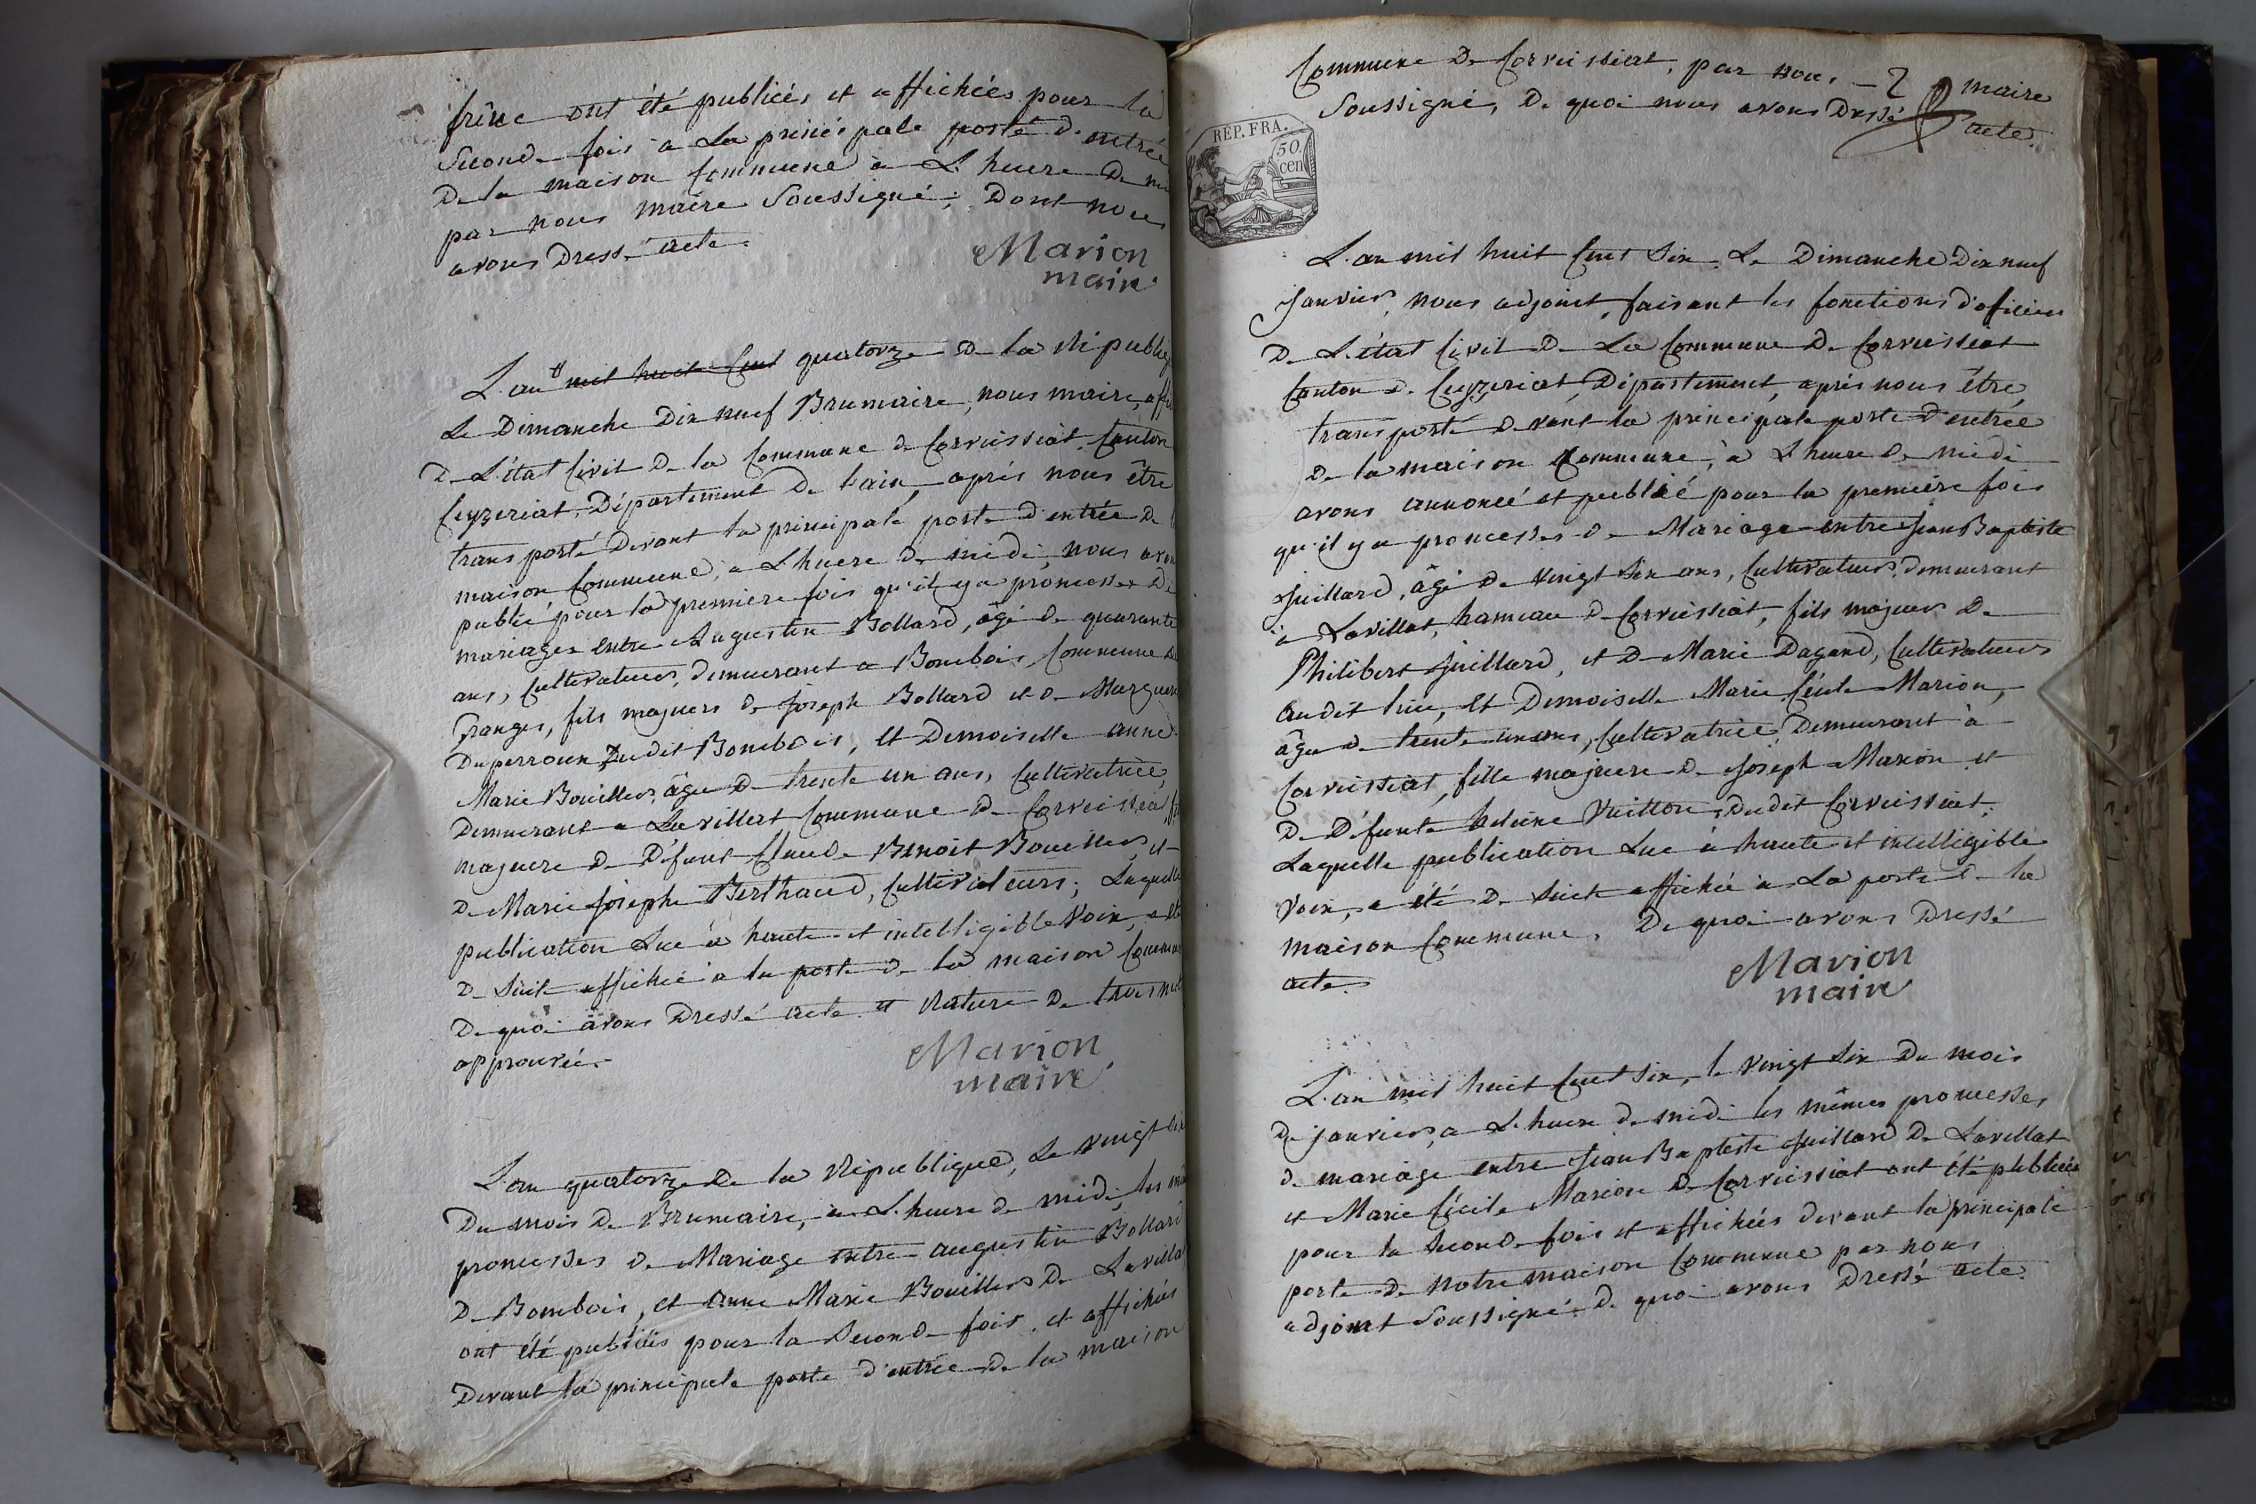 frêne ont été publiés et affichées pour la
seconde fois à La principale porte d'entrée
De la maison Commune à L'heure De mi
par nous maire Soussigné; Dont nous
avons Dressé acte.
Marion
maire
L'an mil huit Cent quatorze De la Républiq
Le Dimanche Dix neuf Brumaire, nous maire, offi
De L'état Civil De la Commune de Corveissiat, Canton
Ceyzeriat, Département De l'ain, après nous être
transporté Devant la principale porte d'entrée De l
maison Commune, à L'heure De midi, nous avon
publié pour la première fois qu'il y a promesses De
mariages entre Augustin Bollard, âgé De quarante
ans, Cultivateur, Demeurant à Bombois, Commune de
Granges, fils majeurs de Joseph Bollard et De Margueri
Duperroux Dudit Bombois, Et Demoiselle anne
Marie Bouiller, âgée De trente un ans, Cultivatrice,
Demeurant à Lavillat Commune De Corveissia, fi
majeure De Défunt Claude Benoit Bouiller, et
De Marie Joseph Berthaud, Cultivateurs; Laquelle
publication Lue à haute et intelligible Voix, a été
De Suite affichée à la porte De la maison Commu
De quoi avons Dressé acte. et Rature De trois mot
approuvée.
Marion
maire
L'an quatorze De la République, Le vingt six
Du mois De Brumaire, à L'heure de midi, les mê
promesses De Mariage entre augustin Bollard
De Bombois, et Anne Marie Bouiller De Lavilla
ont été publiés pour la Seconde fois, et affichées
Devant la principale porte d'entrée De la maison
Commune De Corveissiat, par nous maire
Soussigné, De quoi nous avons Dressé acte.
RÉP. FRA.
50.
cen
L'an mil huit Cent Six, Le Dimanche Dix neuf
Janvier, nous adjoint, faisant les fonctions d'officier
De L'état Civil De La Commune De Corveissiat
Canton De Ceyzeriat, Département, après nous être
transporté Devant la principale porte d'entrée
De la maison Commune, à L'heure De midi
avons annoncé et publié pour la première fois
qu'il y a promesses De Mariage entre Jean Baptiste
Juillard, âgé De Vingt Six ans, Cultivateur, demeurant
à Lavillat, hameau De Corveissiat, fils majeur De
Philibert Juillard, et De Marie Dagand, Cultivateurs
audit lieu, Et Demoiselle Marie Cécile Marion,
âgée De trente un ans, Cultivatrice Demeurant à
Corveissiat, fille majeure De Joseph Marion et
De Défunte heleine Vuitton, Dudit Corveissiat;
Laquelle publication Lue à haute et intelligible
Voix, a été De Suite affichée à La porte De la
maison Commune. De quoi avons Dressé
acte.
Marion
maire
L'an mil huit Cent six, le vingt Six Du mois
De janvier, à L'heure De midi les mêmes promesses
De mariage entre Jean Baptiste Juillard De Lavillat
et Marie Cécile Marion De Corveissiat ont été publiées
pour la Seconde fois et affichées devant la principale
porte De Notre maison Commune par nous
adjoint Soussigné. De quoi avons Dressé acte.